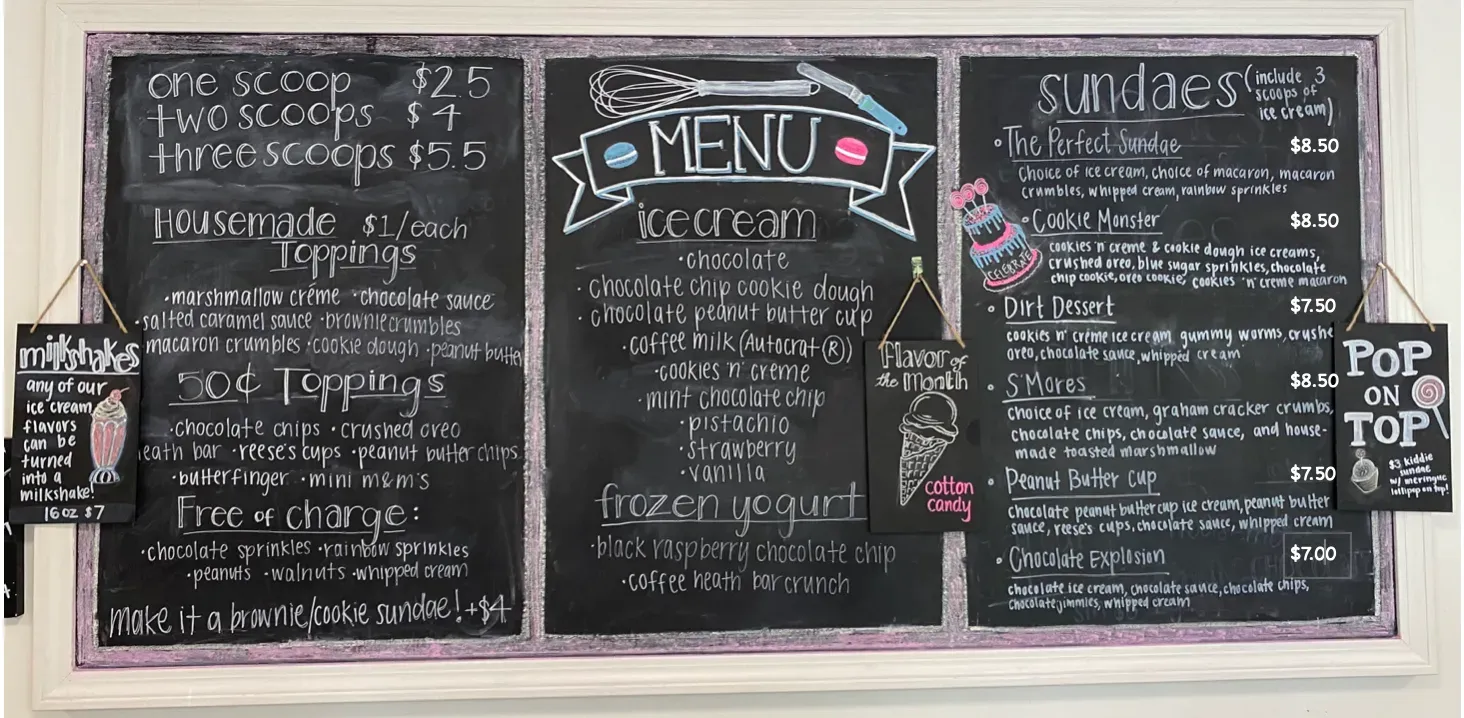 one scoop $2.5
two scoops $4
three scoops $5.5
Housemade $1/each
Toppings
·marshmallow créme ·chocolate sauce
·salted caramel sauce ·brownie crumbles
macaron crumbles ·cookie dough ·peanut butter
50¢ Toppings
·chocolate chips ·crushed oreo
eath bar ·reese's cups ·peanut butter chips
·butterfinger ·mini m&m's
Free of charge:
·chocolate sprinkles ·rainbow sprinkles
·peanuts ·walnuts ·whipped cream
make it a brownie/cookie sundae! +$4
milkshakes
any of our
ice cream
flavors
can be
turned
into a
milkshake!
16oz $7
MENU
ice cream
·chocolate
·chocolate chip cookie dough
·chocolate peanut butter cup
·coffee milk (Autocrat®)
·cookies 'n' creme
·mint chocolate chip
·pistachio
·strawberry
·vanilla
frozen yogurt
·black raspberry chocolate chip
·coffee heath bar crunch
Flavor of
the Month
cotton
candy
sundaes (include 3
scoops of
ice cream)
·The Perfect Sundae $8.50
Choice of ice cream, choice of macaron, macaron
crumbles, whipped cream, rainbow sprinkles
·Cookie Monster $8.50
cookies 'n' creme & cookie dough ice creams,
crushed oreo, blue sugar sprinkles, chocolate
chip cookie, oreo cookie, cookies 'n' creme macaron
CELEBRATE
·Dirt Dessert $7.50
cookies n' creme ice cream, gummy worms, crushe
oreo, chocolate sauce, whipped cream
·S'Mores $8.50
choice of ice cream, graham cracker crumbs,
chocolate chips, chocolate sauce, and house-
made toasted marshmallow
·Peanut Butter Cup $7.50
chocolate peanut butter cup ice cream, peanut butter
sauce, reese's cups, chocolate sauce, whipped cream
·Chocolate Explosion $7.00
chocolate ice cream, chocolate sauce, chocolate chips,
chocolate jimmies, whipped cream
POP
ON
TOP
$3 kiddie
sundae
w/ meringue
lollipop on top!